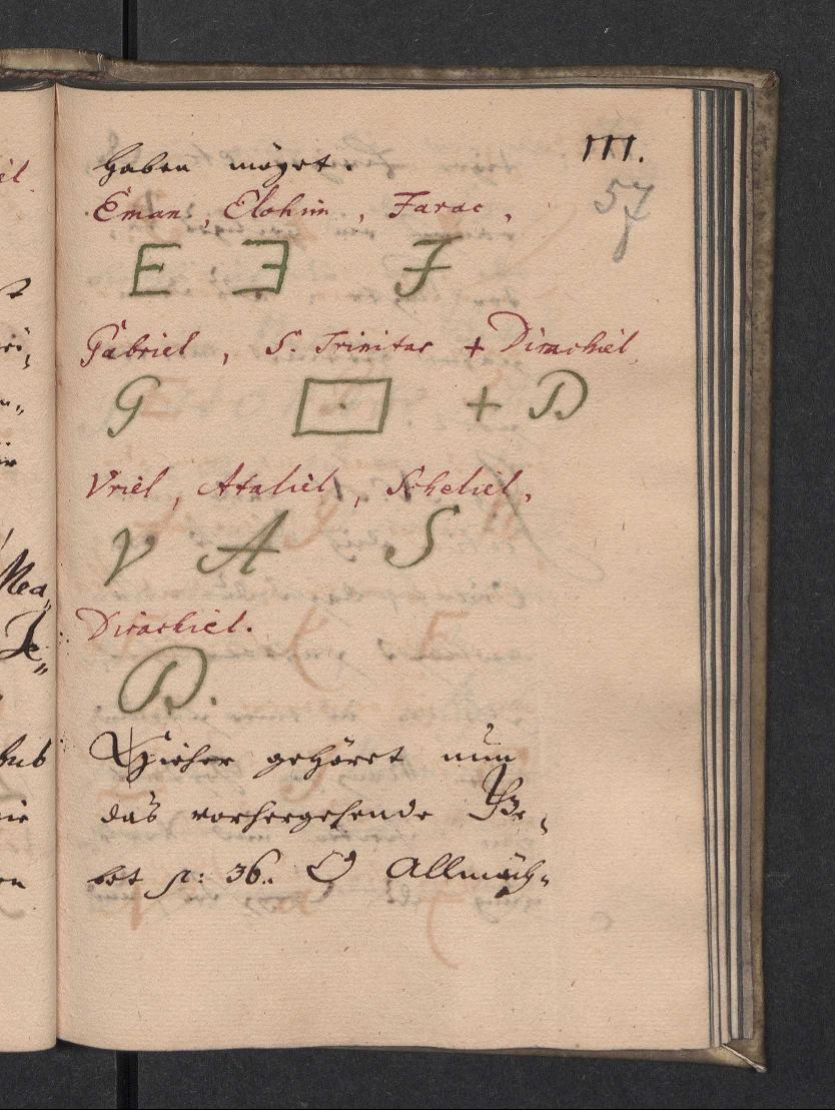 111.
57
haben möget.
Eman, Elohim, Farac,
E E F
Gabriel, S. Trinitas + Dirachiel
G + D
Vriel, Ataliel, Scheliel,
V A S
Dirachiel.
D.
Hieher gehöret nun
das vorhergehende Ge-
bet p: 36. O Allmäch-